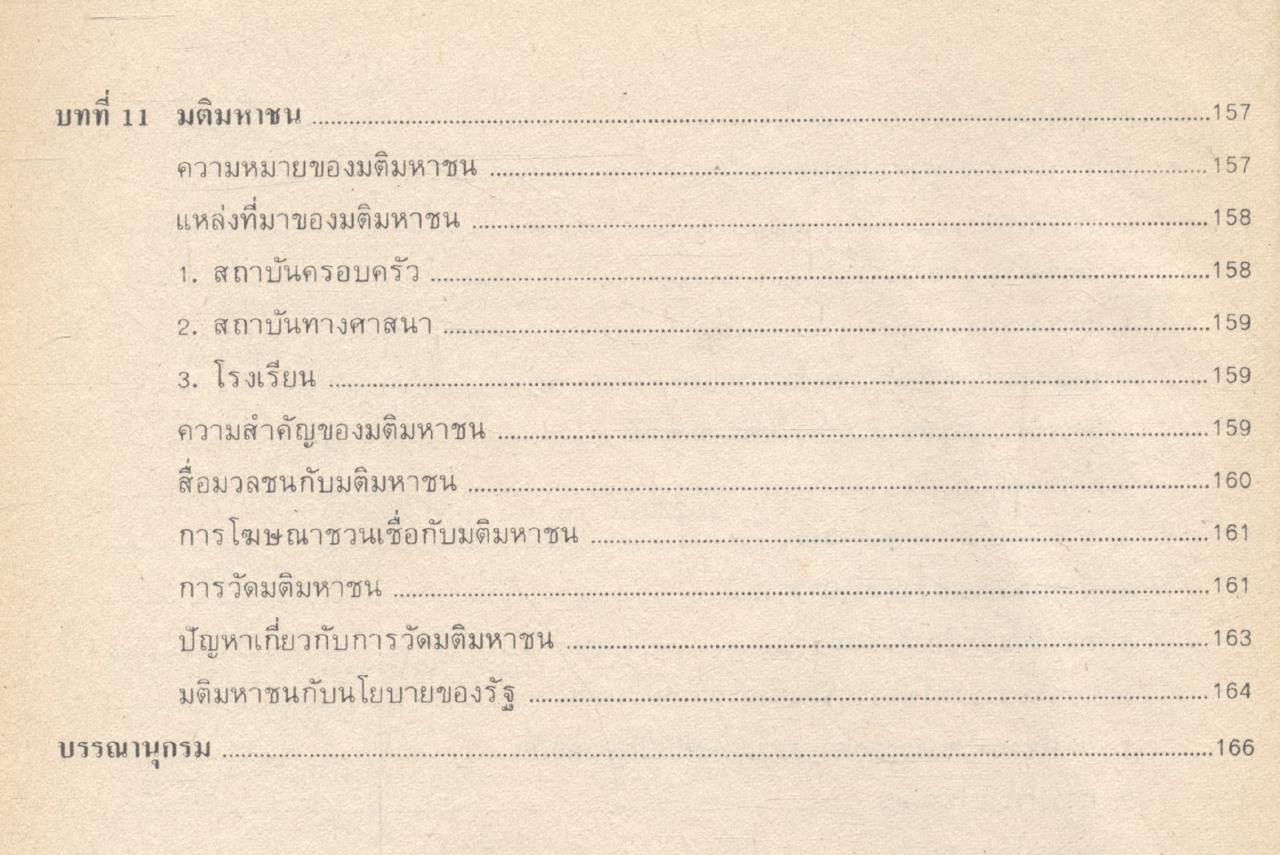 บทที่ 11 มติมหาชน ........ 157
ความหมายของมติมหาชน ........ 157
แหล่งที่มาของมติมหาชน ........ 158
1. สถาบันครอบครัว ........ 158
2. สถาบันทางศาสนา ........ 159
3. โรงเรียน ........ 159
ความสำคัญของมติมหาชน ........ 159
สื่อมวลชนกับมติมหาชน ........ 160
การโฆษณาชวนเชื่อกับมติมหาชน ........ 161
การวัดมติมหาชน ........ 161
ปัญหาเกี่ยวกับการวัดมติมหาชน ........ 163
มติมหาชนกับนโยบายของรัฐ ........ 164
บรรณานุกรม ........ 166